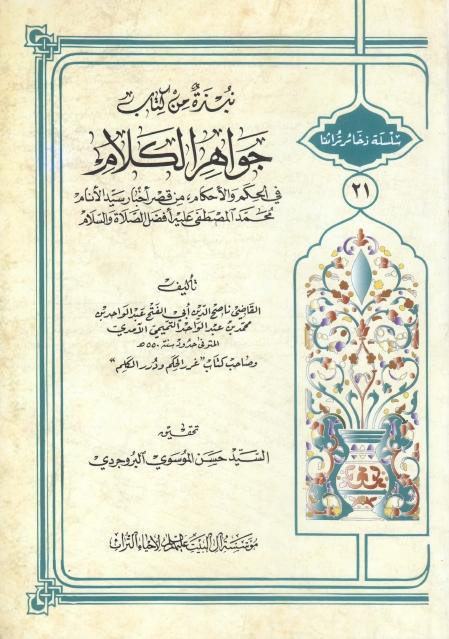 سلسلة ذخائر تراثنا
٢١
نبذة من كتاب
جواهر الكلام
في الحكم والأحكام، من قصر أخبار سيد الأنام
محمد المصطفى عليه أفضل الصلاة والسلام
تأليف
القاضي ناصح الدين أبي الفتح عبد الواحد بن
محمد بن عبد الواحد التميمي الآمدي
المتوفى حدود سنة ٥٥٠ هـ
وصاحب كتاب "غرر الحكم ودرر الكلم"
تحقيق
السيد حسن الموسوي البروجردي
مؤسسة آل البيت عليهم السلام لإحياء التراث